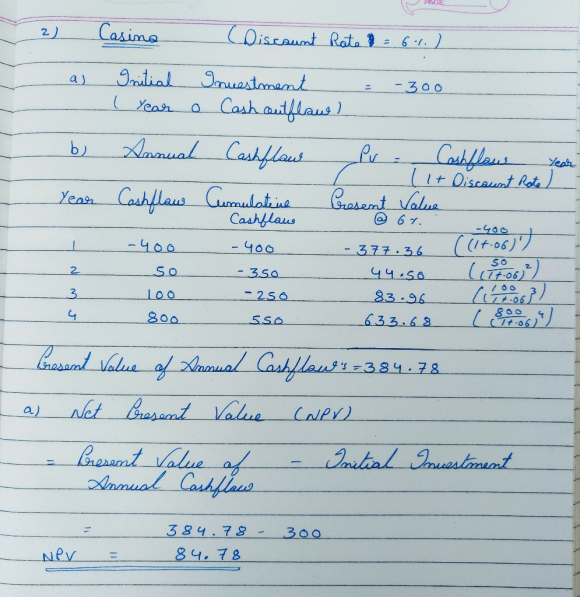 PAGE
2) Casino (Discount Rate = 6%)
a) Initial Investment = -300
( Year 0 Cash outflow)
b) Annual Cashflow PV = Cashflow
(1 + Discount Rate) Year
Year Cashflow Cumulative Cashflow Present Value @ 6%
1 -400 -400 -377.36 (-400/(1+.06)¹)
2 50 -350 44.50 (50/(1+.06)²)
3 100 -250 83.96 (100/(1+.06)³)
4 800 550 633.68 (800/(1+.06)⁴)
Present Value of Annual Cashflow's = 384.78
a) Net Present Value (NPV)
= Present Value of Annual Cashflow - Initial Investment
= 384.78 - 300
NPV = 84.78